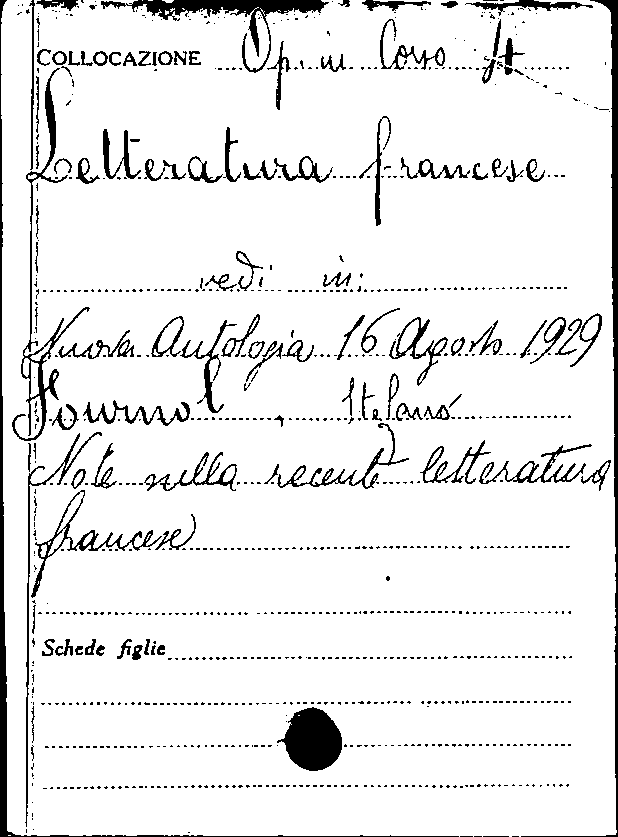 COLLOCAZIONE Op. in Corso 4
Letteratura francese
vedi in:
Nuova Antologia 16 Agosto 1929
Journol, Stefano
Note nella recente letteratura
francese
Schede figlie